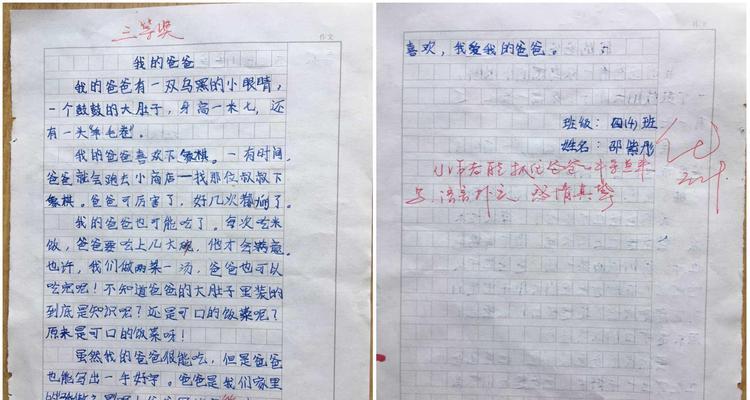 三等奖
作文
我的爸爸
我的爸爸有一双乌黑的小眼睛，
一个鼓鼓的大肚子，身高一米七，还
有一头羊毛卷。
我的爸爸喜欢下象棋。一有时间，
爸爸就会跑去小商店找那位叔叔下
象棋。爸爸可厉害了，好几次都赢了。
我的爸爸也可能吃了。每次吃米
饭，爸爸要吃上几大碗，他才会满意。
也许，我们做两菜一汤，爸爸也可以
吃完呢！不知道爸爸的大肚子里装的
到底是知识呢？还是可口的饭菜呢？
原来是可口的饭菜呀！
虽然我的爸爸很能吃，但是爸爸
也能写出一手好字。爸爸是我们家里
作文
喜欢，我爱我的爸爸。
班级：四(4)班
姓名：邵
小作者能抓住爸爸
语言 感情真挚